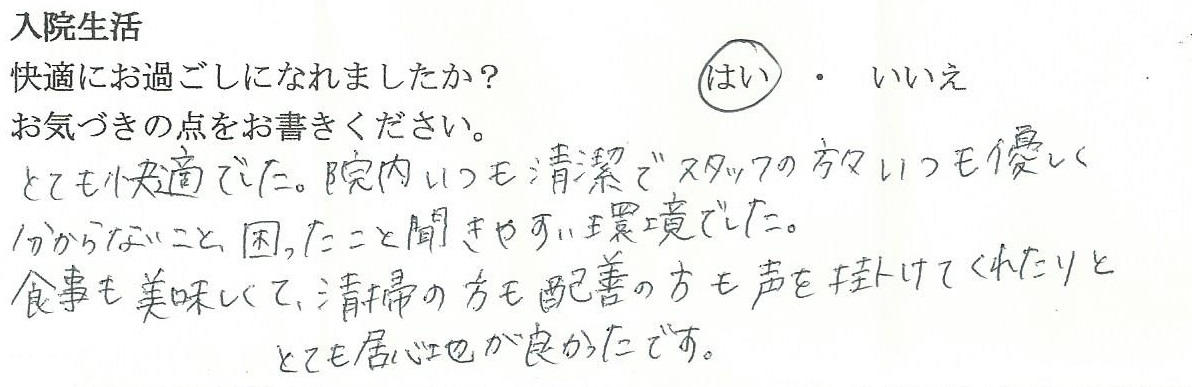 入院生活
快適にお過ごしになれましたか? はい ・ いいえ
お気づきの点をお書きください。
とても快適でした。院内いつも清潔でスタッフの方々いつも優しく
分からないこと、困ったこと聞きやすい環境でした。
食事も美味しくて、清掃の方も配善の方も声を掛けてくれたりと
とても居心地が良かったです。